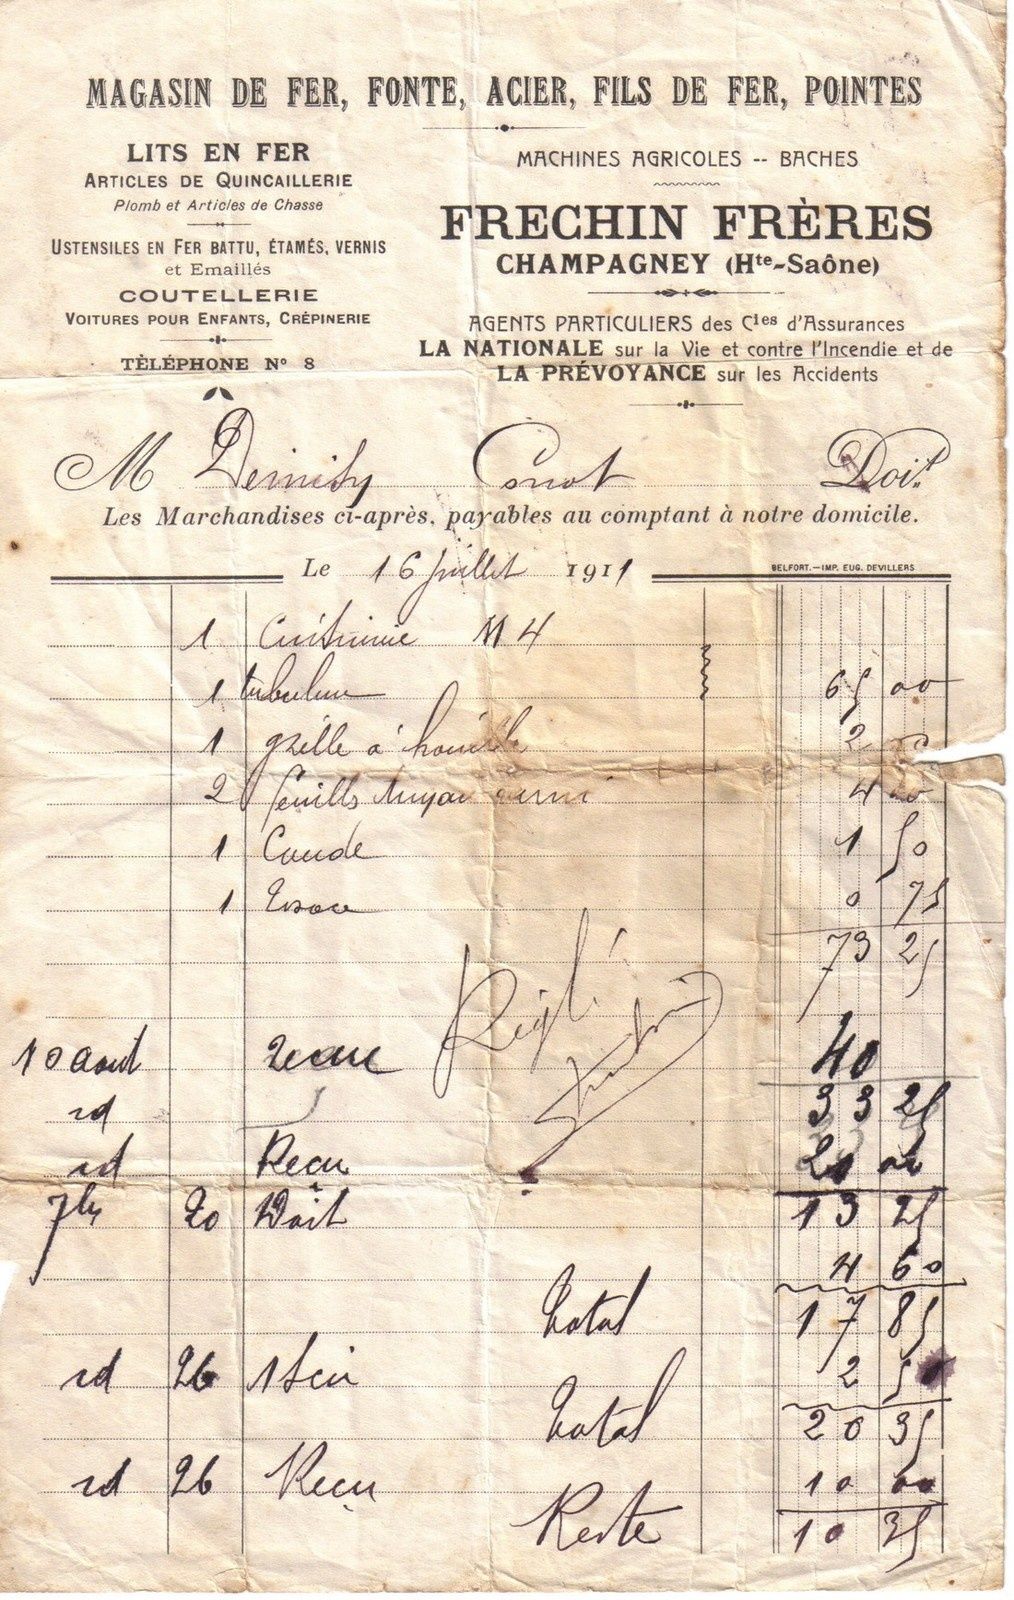 MAGASIN DE FER, FONTE, ACIER, FILS DE FER, POINTES
LITS EN FER
ARTICLES DE QUINCAILLERIE
Plomb et Articles de Chasse
USTENSILES EN FER BATTU, ÉTAMÉS, VERNIS
et Emaillés
COUTELLERIE
VOITURES POUR ENFANTS, CRÉPINERIE
TÉLÉPHONE No 8
MACHINES AGRICOLES -- BACHES
FRECHIN FRÈRES
CHAMPAGNEY (Hte-Saône)
AGENTS PARTICULIERS des Cies d'Assurances
LA NATIONALE sur la Vie et contre l'Incendie et de
LA PRÉVOYANCE sur les Accidents
M Doit
Les Marchandises ci-après, payables au comptant à notre domicile.
Le 16 Juillet 1911
BELFORT.—IMP. EUG. DEVILLERS
1 4
1 tubulure 65 00
1 grille à houille 2 00
2 feuills tuyau verni 4 00
1 Coude 1 50
1 0 75
73 25
Réglé
10 aout 40
id 33 25
id Reçu 20 00
7bre 20 Doit 13 25
4 60
total 17 85
id 26 1 2 50
total 20 35
id 26 Reçu 10 00
Reste 10 35